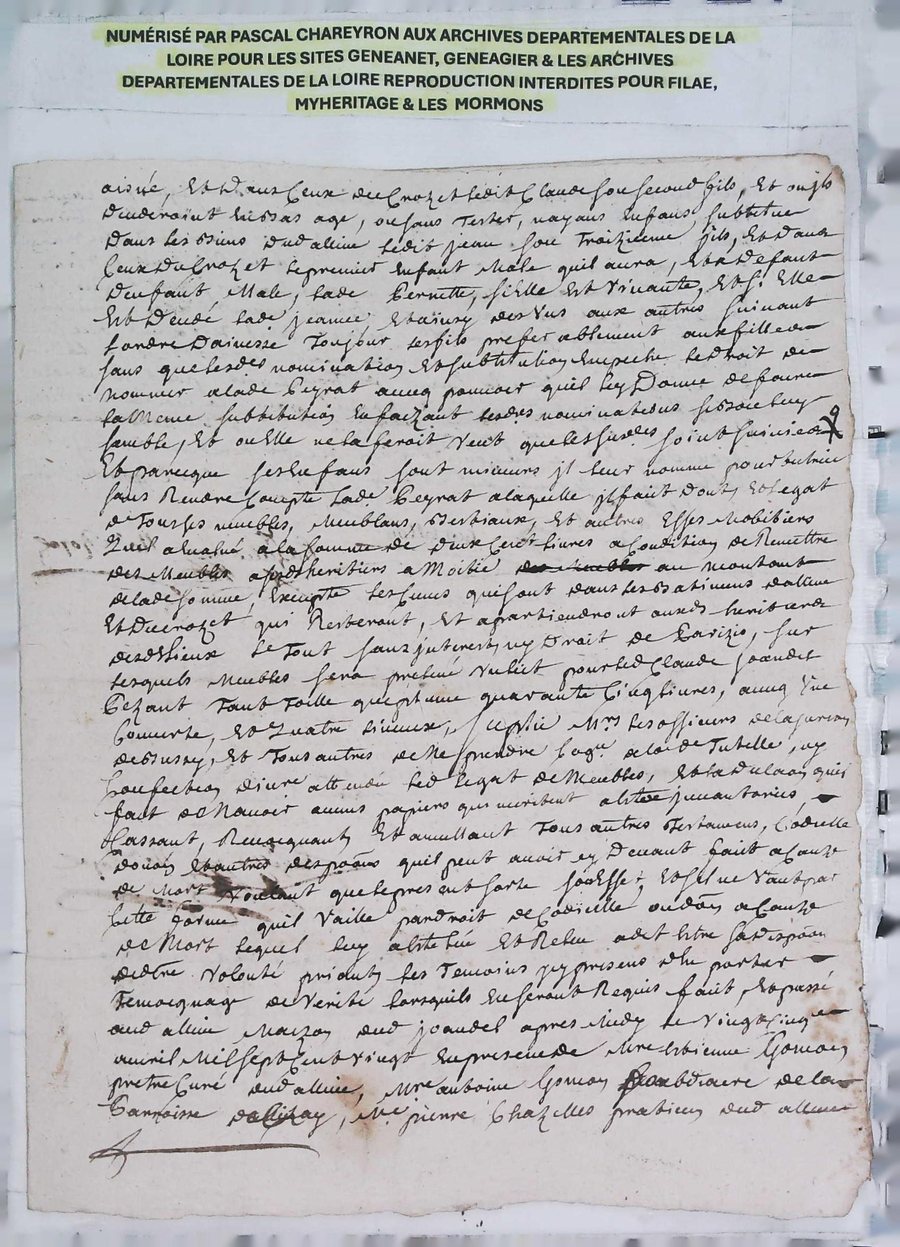 NUMÉRISÉ PAR PASCAL CHAREYRON AUX ARCHIVES DEPARTEMENTALES DE LA
LOIRE POUR LES SITES GENEANET, GENEAGIER & LES ARCHIVES
DEPARTEMENTALES DE LA LOIRE REPRODUCTION INTERDITES POUR FILAE,
MYHERITAGE & LES MORMONS
aisné, Et dans Ceux du Crozet ledit Claude son second fils, Et ou ils
decederoint en bas age, ou sans Tester, nayans Enfans, substitue
Dans les biens dud allieu ledit jean son Troizieme fils, Et dans
Ceux Du Crozet le premier Enfant Male quil aura, Et a Defaut
Denfant Male, lade Pernette, si Elle Est Vivante, Et si Elle
Est Decedé lade jeanne Et ainsy des Uns aux autres suivant
Lordre Dainesse Toujour les fils preferablement aux filles
sans que lesdes nomination Et substitution Empeche le droit de
nommer a lade Peyrat avecq pouvoir quil luy Donne de faire
la Meme substitution En faizant lesdes nominations si bon luy
semble, Et ou Elle ne la feroit Veut que les susdes soint suivies
Et parceque ses Enfans sont mineurs jl leur nomme pour tutrice
sans Rendre Compte lade Peyrat a laquelle jl fait don Et legat
de Tous ses meubles, Meublans, bestiaux, Et autres Effes Mobiliers
quil a Evalué a la somme de deux Cent livres a Condition de Remettre
des Meubles a sesds heritiers a Moitié au montant
de lade somme, Excepté les Cuves qui sont dans les Batimens dallieu
Et du Crozet qui Resteront, Et apartiendront auxds heritiers
desds lieux Le Tout sans jnterest ny Droit de Parizis, sur
lesquels Meubles sera prelevé Un lict pour led Claude Joandel
Pezant Tant Toille que plume quarante Cinq livres, avecq Une
Couverte, Et Quatre linceux, suplie Mrs les officiers de la jurisdon
de Bussy, Et Tous autres de Ne prendre Cogce de lade Tutelle, ny
Confection dinvre attendu led legat de Meubles, Et la declaaon quil
fait de Navoir aucuns papiers qui meritent destre jnvantoriés
Cassant, Revocquant Et annullant Tous autres Testamens, Codicille
donaon Et autres disposons quil peut avoir cy Devant fait a Cause
de Mort Voulant que le present sorte son Effet, Et sil ne Vaut par
Cette forme quil Vaille par droit de Codicille ou don a Cause
de Mort lequel luy a Esté leu Et Releu a dit Estre sa dispoon
de dre Volonté priant les Temoins icy presens den porter
Temoignage de Verité lorsquils En seront Requis fait, Et passé
aud allieu Maison dud joandel apres Midy le Vingt Cinq
avril Mil sept Cent Vingt En presence de Mre Estienne Gonon
pretre Curé dud allieu, Mre antoine Gonon soubdiacre de la
Parroisse, Me pierre Chazelles praticien dud allieu